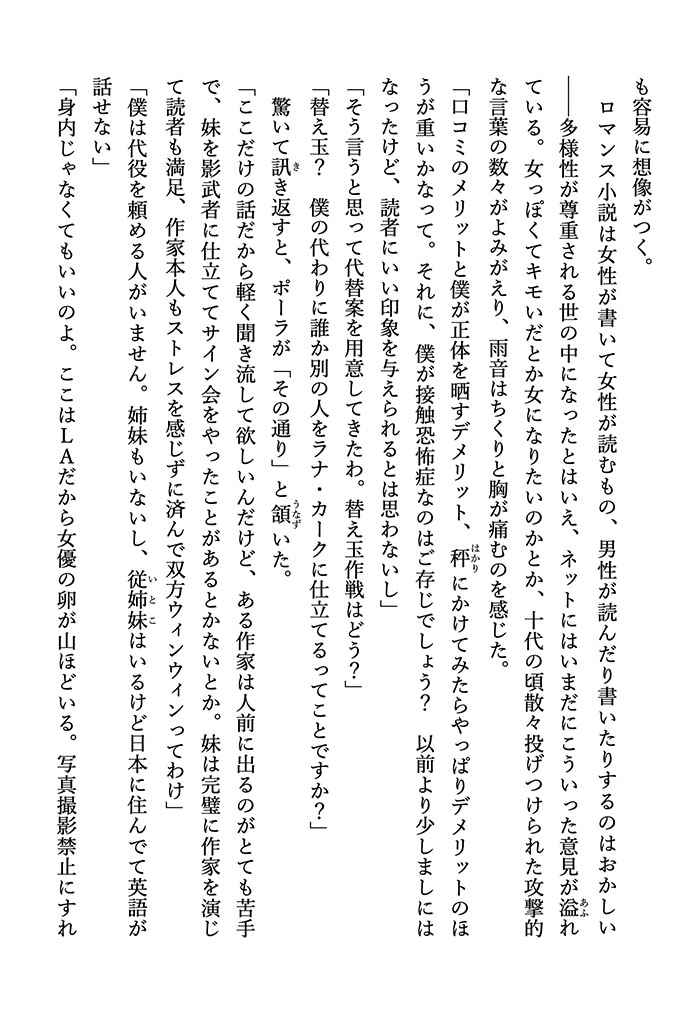 も容易に想像がつく。
　ロマンス小説は女性が書いて女性が読むもの、男性が読んだり書いたりするのはおかしい
――多様性が尊重される世の中になったとはいえ、ネットにはいまだにこういった意見が溢れ
ている。女っぽくてキモいだとか女になりたいのかとか、十代の頃散々投げつけられた攻撃的
な言葉の数々がよみがえり、雨音はちくりと胸が痛むのを感じた。
「口コミのメリットと僕が正体を晒すデメリット、秤にかけてみたらやっぱりデメリットのほ
うが重いかなって。それに、僕が接触恐怖症なのはご存じでしょう？　以前より少しましには
なったけど、読者にいい印象を与えられるとは思わないし」
「そう言うと思って代替案を用意してきたわ。替え玉作戦はどう？」
「替え玉？　僕の代わりに誰か別の人をラナ・カークに仕立てるってことですか？」
　驚いて訊き返すと、ポーラが「その通り」と頷いた。
「ここだけの話だから軽く聞き流して欲しいんだけど、ある作家は人前に出るのがとても苦手
で、妹を影武者に仕立ててサイン会をやったことがあるとかないとか。妹は完璧に作家を演じ
て読者も満足、作家本人もストレスを感じずに済んで双方ウィンウィンってわけ」
「僕は代役を頼める人がいません。姉妹もいないし、従姉妹はいるけど日本に住んでて英語が
話せない」
「身内じゃなくてもいいのよ。ここはＬＡだから女優の卵が山ほどいる。写真撮影禁止にすれ